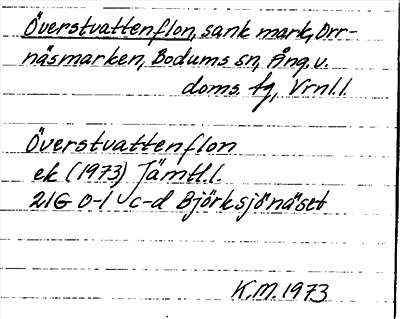 Överstvattenflon, sank mark, Orr-
näsmarken, Bodums sn, Ång. v.
doms fg, Vrnl.l.
Överstvattenflon
ek (1973) Jämtl.l.
21G 0-1 c-d Björksjönäset
K.M. 1973